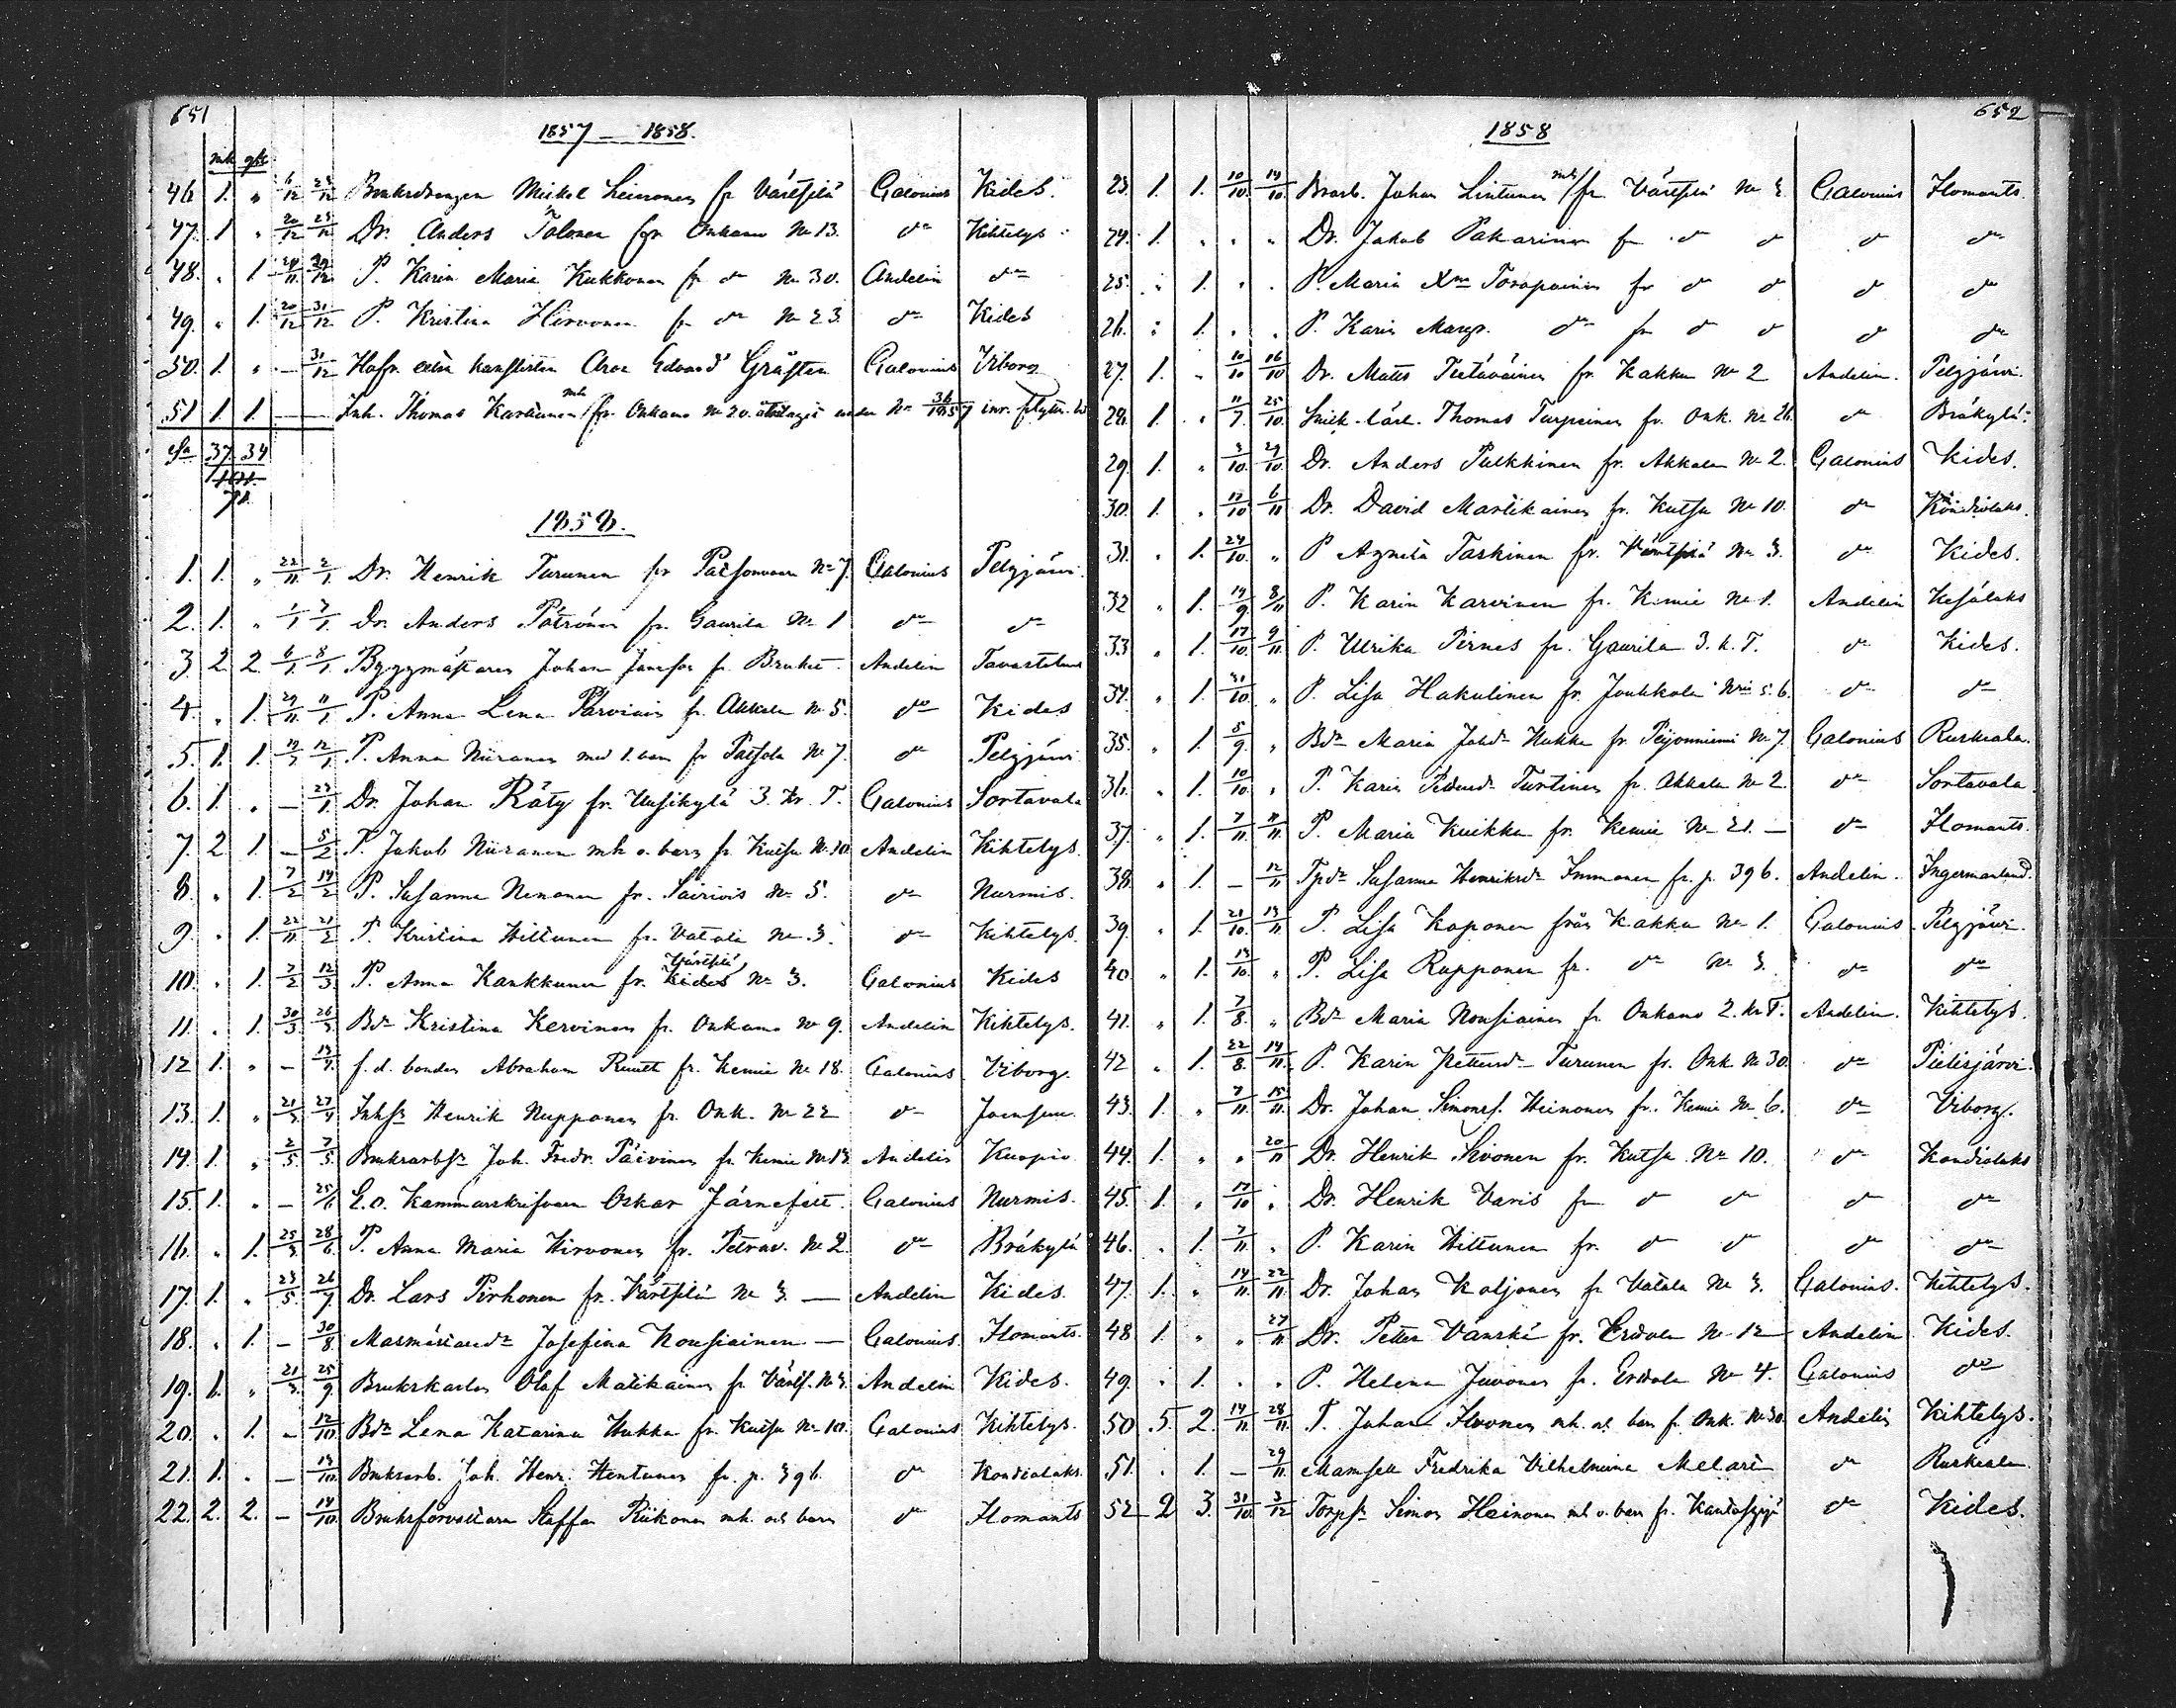 651
1857 – 1858.
mk qk
46 1. " 6/12 23/12 Bruksdrengen Mickel Leinonen fr Värtsilä Galonius Kides.
47. 1 " 20/12 23/12 Dr. Anders Tolonen fr Onkamo No 13. do Kihtelys
48. " 1. 24/11 29/12 P. Karin Maria Kukkonen fr do No 30. Andelin do
49. " 1. 20/12 31/12 P. Kristina Hirvonen fr do No 23. do Kides
50. 1. " – 31/12 Hofr. extra kanslisten Edvard Gråsten Galonius Viborg
51 1 1. — Inh. Thomas Karttunen mh fr. Onkamo No 20. under No 36/1857 inr.
Sa 37. 34
71.
1858.
1. 1. " 22/11 2/1 Dr. Henrik Turunen fr Patsonvaara No 7. Galonius Pelgjärvi.
2. 1. " 1/1 7/1. Dr. Anders Pätrönen fr. Gaurila No 1 do do
3. 2. 2. 6/1 8/1. Byggmästaren Johan fr. Bruket Andelin Tavastehus
4. " 1. 29/11 11/1 P. Anna Lena Parviain fr. Akkala No 5. do Kides
5. 1. 1. 12/1 P. Anna Niiranen med 1. barn fr Patsola No 7. do Pelgjärvi
6. 1. " – 23/1. Dr. Johan Räty fr. Uusikylä 3. Kr. T. Galonius Sortavala
7. 2. 1. – 5/2 P. Jakob Niiranen mh o. barn fr. Kutsu No 10 Andelin Kihtelys.
8. " 1. 7/2 14/2 P. Susanna Nenonen fr. Sairivis No 5. do Nurmis.
9. " 1. 22/11 21/2 P. Kristina Hiltunen fr. Vatala No 3. do Kihtelys.
10. " 1. 7/2 12/3 P. Anna Kankkunen fr. Kides Värtsilä No 3. Galonius Kides
11. " 1. 30/3 26/3 Bdr Kristina Kervinen fr. Onkamo No 9. Andelin Kihtelys.
12 1. " – 13/4. f.d. bonden Abraham Ruuth fr. Kemie No 18. Galonius Viborg.
13. 1. " 21/3 27/4 Inhsr Henrik Nupponen fr. Onk. No 22 do Joensuu
14. 1. " 2/5. 7/5. Bruksarbsr Joh. Fredr. Päivinen fr. Kemie No 13 Andelin Kuopio
15. 1. " – 25/6 E.o. Kammarskrifvaren Oskar Järnefelt. Galonius Nurmis.
16. " 1. 25/3 28/6. P. Anna Maria Hirvonen fr. Petrav. No 2. do Bräkylä
17. 1. " 23/5. 26/7 Dr. Lars Pirhonen fr. Värtsilä No 3. — Andelin Kides.
18. " 1. – 30/8. Josefina Nousiainen — Galonius. Ilomants.
19. 1. " 21/3. 25/9 Brukskarlen Olof Matikainen fr. Värtsl. No 3. Andelin Kides.
20. " 1. – 12/10 Bdr Lena Katarina Hukka fr. Kutsu No 10. Galonius Kihtelys.
21. 1. " – 13/10. Bruksarb. Joh. Henr. Hentunen fr. p. 396. do Kondiolaks.
22. 2. 2. – 14/10. Bruksförvaltaren Staffan Riikonen mh. och barn do Ilomants
652
1858
23. 1. 1. 10/10. 14/10. Brarb. Johan Lintunen mh fr. Värtsilä No 3. Galonius Ilomants.
24. 1. " " " Dr. Jakob Pakarinen fr do do do do
25. " 1. " " P. Maria Xna Toropainen fr do do do do
26. " 1. " " P. Karin Margr. do fr do do do do
27. 1. " 10/10 16/10 Dr. Matts Tietäväinen fr. Kakku No 2 Andelin. Pelgjärvi.
28. 1. " 11/7. 25/10. Smed-lärl. Thomas Turpeinen fr. Onk. No 26. do Bräkylä
29. 1. " 3/10. 29/10. Dr. Anders Pulkkinen fr. Akkala No 2. Galonius Kides.
30. 1. " 17/10 6/11 Dr. David Martikainen fr. Kutsu No 10. do Kondiolaks.
31. " 1. 24/10. " P. Agneta Tarkinen fr. Värtsilä No 3. do Kides.
32 " 1. 19/9 8/11 P. Karin Karvinen fr. Kemie No 1. Andelin Kesälaks
33 " 1. 17/10. 9/11. P. Ulrika Pirnes fr. Gaurila 3. k. T. do Kides.
34. " 1. 31/10. " P. Lisa Hakulinen fr. Jouhkola Nris 5. 6. do do
35. " 1. 5/9. " Bdr Maria Johdr Hukka fr. Peijonniemi No 7. Galonius Ruskeala.
36. " 1. 10/10. " P. Karin Turtinen fr. Akkala No 2. do Sortavala.
37. " 1. 7/11. 11/11. P. Maria Kuikka fr. Kemie No 21. – do Ilomants.
38. " 1. – 12/11 Tpdr Susanna Henriksdr Immonen fr. p. 396. Andelin. Ingermanland.
39. " 1. 21/10. 13/11 P. Lisa Koponen från Kakku No 1. Galonius Pelgjärvi.
40 " 1. 13/10. " P. Lisa Rupponen fr. do No 3. do do
41. " 1. 7/8. " Bdr Maria Nousiainen fr. Onkamo 2. kr T. Andelin. Kihtelys.
42 " 1. 22/8. 14/11. P. Karin Pettersdr Turunen fr. Onk. No 30. do Pielisjärvi.
43. 1. " 7/11. 15/11. Dr. Johan Simonss. Heinonen fr. Kemie No 6. do Viborg.
44. 1. " " 20/11 Dr. Henrik Sivonen fr. Kutsu No 10. do Kondiolaks
45. 1. " 17/10 " Dr. Henrik Varis fr do do do do
46. " 1. 7/11. " P. Karin Hiltunen fr. do do do do
47. 1. " 14/11. 22/11. Dr. Johan Koljonen fr Vatala No 3. Galonius. Kihtelys.
48 1. " " 27/11 Dr. Petter Vänskä fr. Erdvala No 12 Andelin Kides.
49. " 1. " " P. Helena Juvonen fr. Erdvala No 4. Galonius do
50 5 2. 14/11. 28/11. P. Johan Ilvonen mh. och barn fr. Onk. No 30. Andelin Kihtelys.
51. " 1. – 29/11. Mamsell Fredrika Vilhelmina Melart do Ruskeala
52 2 3. 31/10. 3/12 Torpsr Simon Heinonen mh o. barn fr. do Kides.